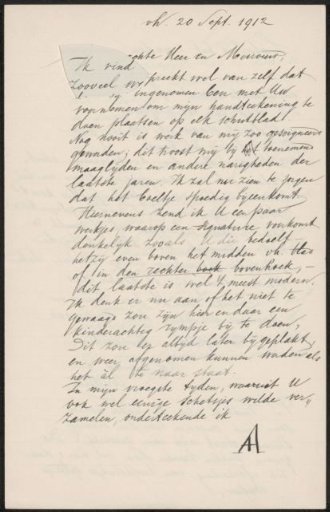 vh 20 Sept. 1912
Geachte Heer en Mevrouw,
Ik vind
zooveel spreekt wel van zelf dat
ingenomen ben met Uw
voornemen om mijn handteekening te
doen plaatsen op elk schutblad
Nog nooit is werk van mij zoo
geworden; dit troost mij bij het toenemen
maaglijden en andere narigheden der
laatste jaren. Ik zal nu zien te zorgen
dat het boeltje spoedig bijeenkomt
Hiernevens zend ik U een paar
werkjes waarop een signature voorkomt
denkelijk zooals U die bedoelt
hetzij even boven het midden vh.
of in den rechter bovenhoek, —
dit laatste is wel 't meest modern.
Ik denk er nu aan of het niet te
gewaagd zou zijn hier en daar een
kinderachtig rympje bij te doen,
Dit zou er altyd later bij geplakt
en weer afgenomen kunnen worden als
het àl te naar staat.
In mijn vroegste tyden, waaruit U
ook wel eenige schetsjes wilde ver-
zamelen, onderteekende ik
AH